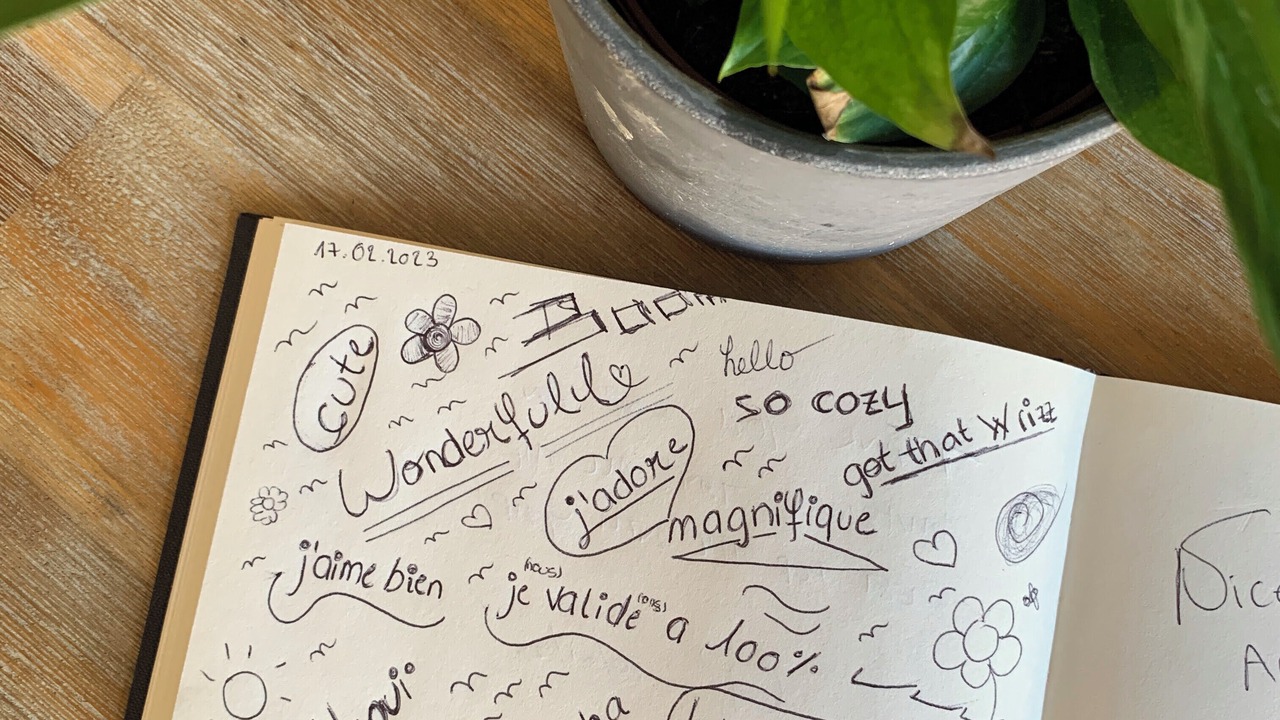 17.02.2023
cute
Wonderfulll
hello
so cozy
got that W rizz
j'adore
magnifique
j'aime bien
(nous)
je valide(ons) à 100%